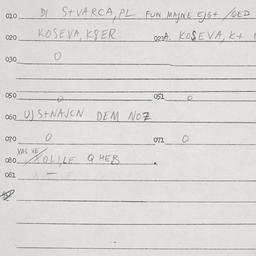 010 DI S+VARCA,PL FUN MAJNE EJS+
020 KOSEVA,K8ER 021A. KOSEVA,K+
030 O
050 O 051 O
060 UJS+NAJCN DEM NOZ
070 O 071 O
080 XOLI,LE Q HEB
081 —